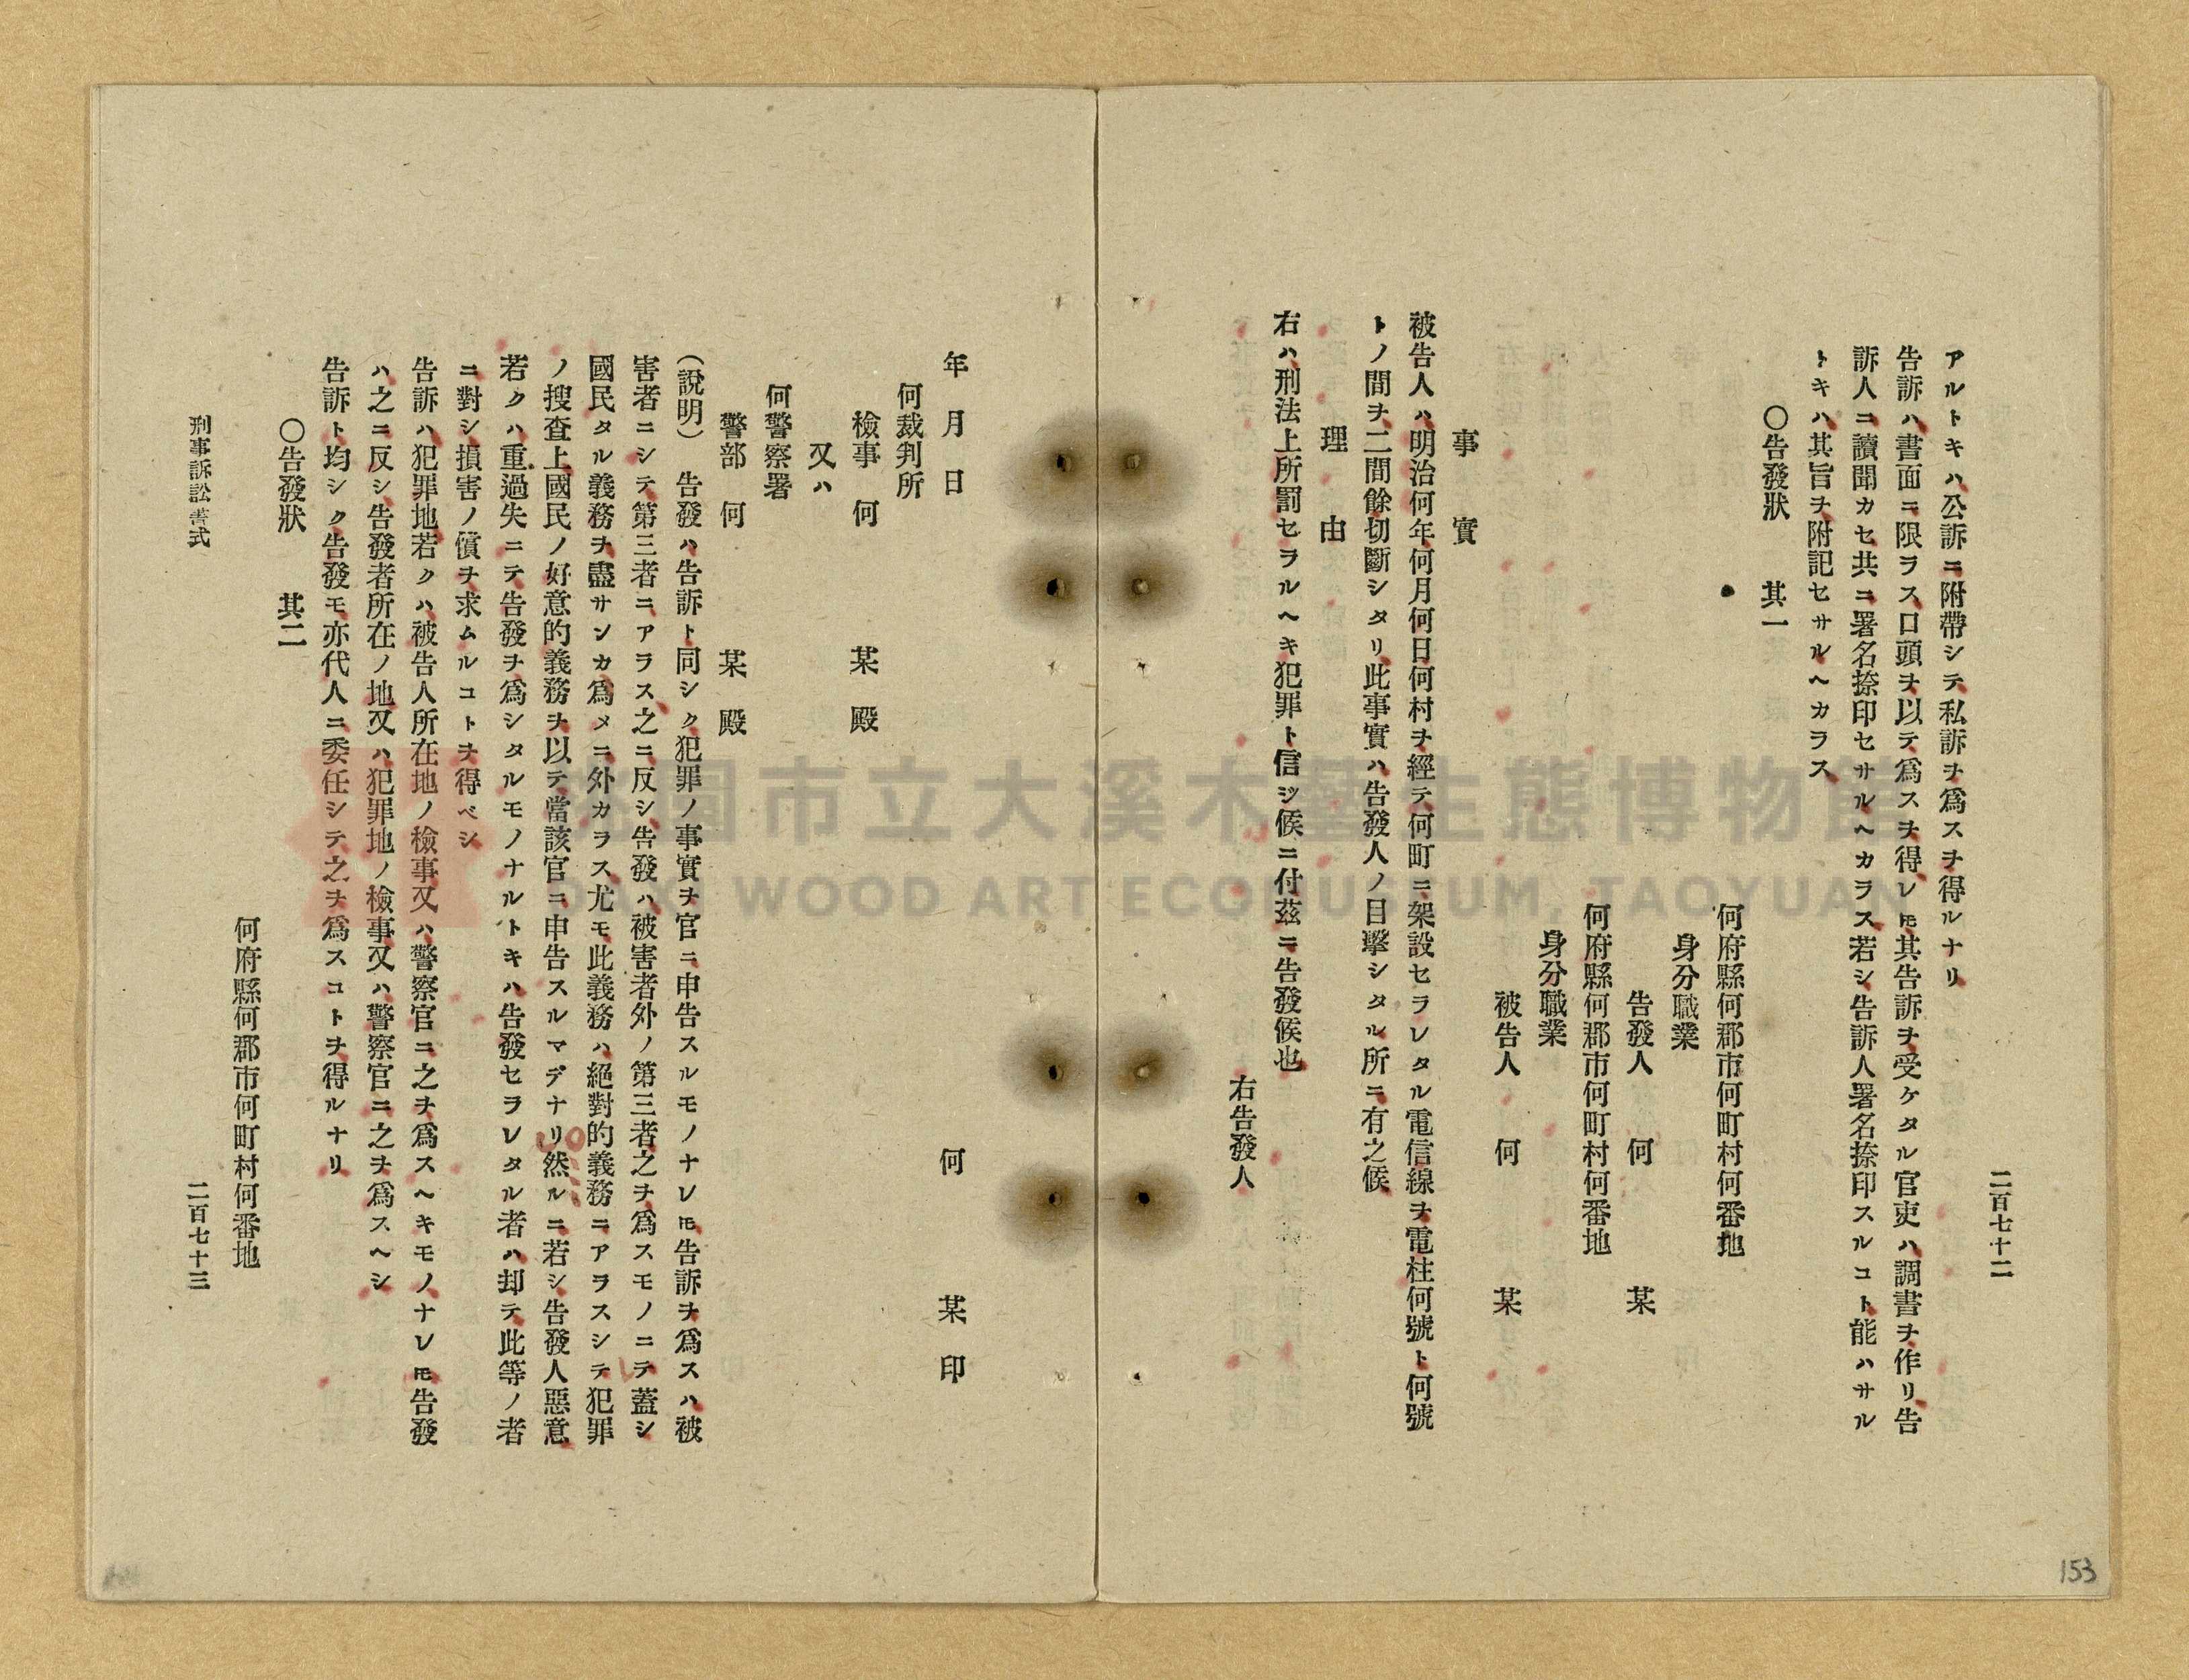 二百七十二
アルトキハ公訴ニ附帶シテ私訴ヲ爲スヲ得ルナリ
告訴ハ書面ニ限ヲス口頭ヲ以テ爲スヲ得レ𪜈其告訴ヲ受ケタル官吏ハ調書ヲ作リ告
訴人ニ讀聞カセ共ニ署名捺印セサルヘカラス若シ告訴人署名捺印スルコト能ハサル
トキハ其旨ヲ附記セサルヘカラス
〇告發狀　其一
何府縣何郡市何町村何番地
身分職業
告發人　何　某
何府縣何郡市何町村何番地
身分職業
被告人　何　某
事實
被告人ハ明治何年何月何日何村ヲ經テ何町ニ架設セラレタル電信線ヲ電柱何號ト何號
トノ間ヲ二間餘切斷シタリ此事實ハ告發人ノ目擊シタル所ニ有之候
理由
右ハ刑法上所罰セラルヘキ犯罪ト信シ候ニ付茲ニ告發候也
右告發人
何　某　印
年月日
何裁判所
檢事　何　某　殿
又ハ
何警察署
警部　何　某　殿
（說明）　告發ハ告訴ト同シク犯罪ノ事實ヲ官ニ申告スルモノナレ𪜈告訴ヲ爲スハ被
害者ニシテ第三者ニアラス之ニ反シ告發ハ被害者外ノ第三者之ヲ爲スモノニテ蓋シ
國民タル義務ヲ盡サンカ爲メニ外カラス尤モ此義務ハ絕對的義務ニアラスシテ犯罪
ノ搜査上國民ノ好意的義務ヲ以テ當該官ニ申告スルマデナリ然ルニ若シ告發人惡意
若クハ重過失ニテ告發ヲ爲シタルモノナルトキハ告發セラレタル者ハ却テ此等ノ者
ニ對シ損害ノ償ヲ求ムルコトヲ得ベシ
告訴ハ犯罪地若クハ被告人所在地ノ檢事又ハ警察官ニ之ヲ爲スヘキモノナレ𪜈告發
ハ之ニ反シ告發者所在ノ地又ハ犯罪地ノ檢事又ハ警察官ニ之ヲ爲スヘシ
告訴ト均シク告發モ亦代人ニ委任シテ之ヲ爲スコトヲ得ルナリ
〇告發狀　其二
何府縣何郡市何町村何番地
刑事訴訟書式
二百七十三
153
桃園市立大溪木藝生態博物館
DAXI WOOD ART ECOMUSEUM, TAOYUAN